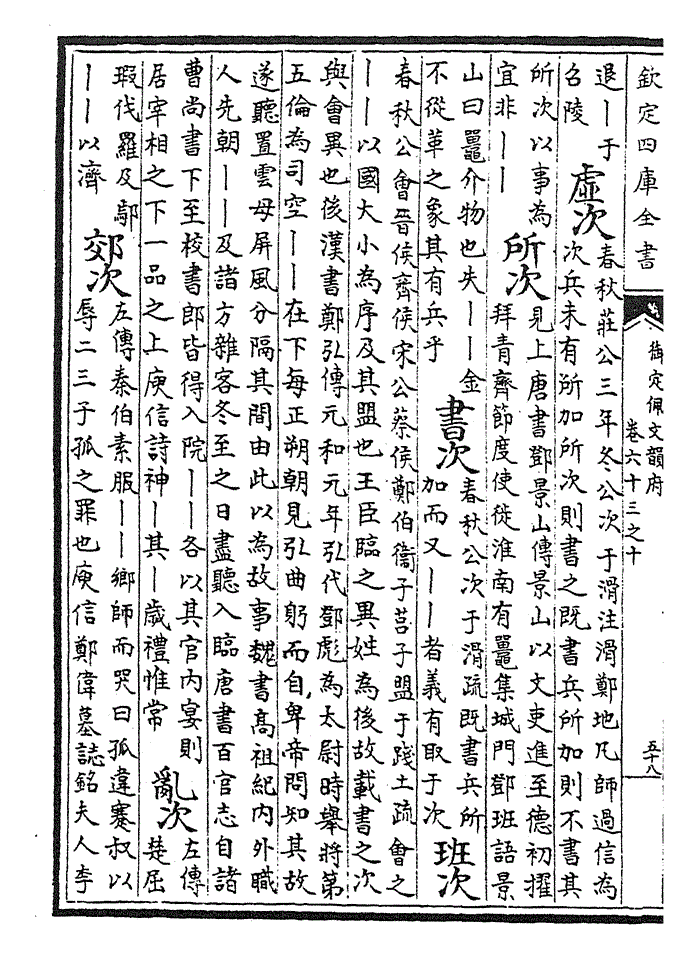 欽定四庫全書
御定佩文韻府
卷六十三之十
五十八
退丨于
召陵
虛次
春秋莊公三年冬公次于滑注滑鄭地凡師過信為
次兵未有所加所次則書之既書兵所加則不書其
所次以事為
宜非丨丨
所次
見上唐書鄧景山傳景山以文吏進至德初擢
拜青齊節度使徙淮南有鼉集城門鄧班語景
山曰鼉介物也失丨丨金
不從革之象其有兵乎
書次
春秋公次于滑疏既書兵所
加而又丨丨者義有取于次
班次
春秋公會晉侯齊侯宋公蔡侯鄭伯衞子莒子盟于踐土疏會之
丨丨以國大小為序及其盟也王臣臨之異姓為後故載書之次
與會異也後漢書鄭弘傳元和元年弘代鄧彪為太尉時舉將第
五倫為司空丨丨在下每正朔朝見弘曲躬而自卑帝問知其故
遂聽置雲母屏風分隔其間由此以為故事魏書高祖紀內外職
人先朝丨丨及諸方雜客冬至之日盡聽入臨唐書百官志自諸
曹尚書下至校書郎皆得入院丨丨各以其官內宴則
居宰相之下一品之上庾信詩神丨其丨歲禮惟常
亂次
左傳
楚屈
瑕伐羅及鄢
丨丨以濟
郊次
左傳秦伯素服丨丨鄉師而哭曰孤違蹇叔以
辱二三子孤之罪也庾信鄭偉墓誌銘夫人李